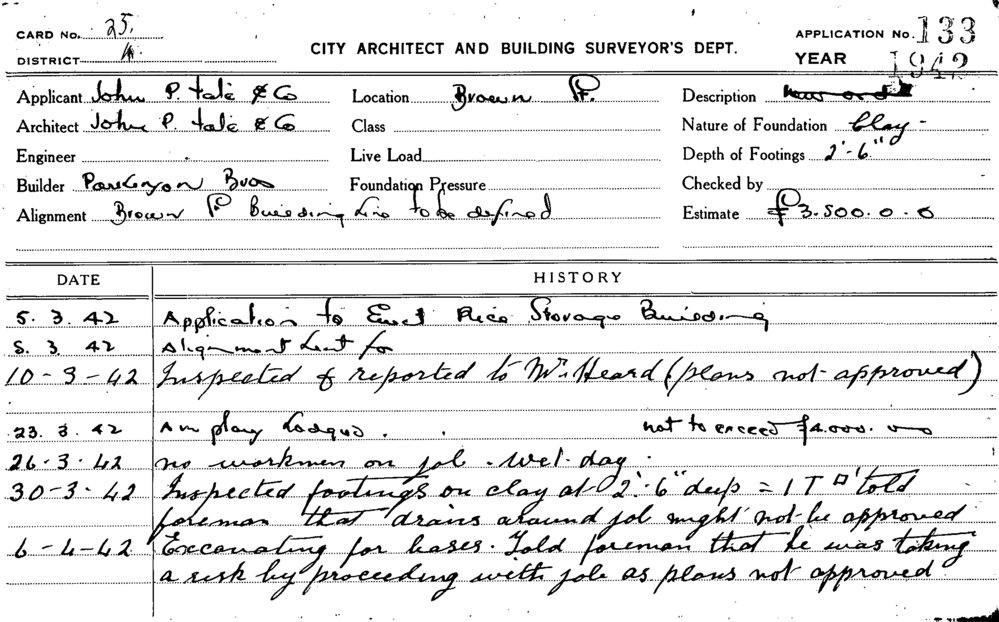 CARD No. 25.
DISTRICT A
CITY ARCHITECT AND BUILDING SURVEYOR'S DEPT.
APPLICATION No. 133
YEAR 1942
Applicant John P. Tate & Co Location Brown St. Description
Architect John P. Tate & Co Class Nature of Foundation Clay -
Engineer Live Load Depth of Footings 2'-6"
Builder Parkinson Bros Foundation Pressure Checked by
Alignment Brown St Building Line to be defined Estimate £3.500.0.0
DATE HISTORY
5. 3. 42 Application to Erect Rice Storage Building
5. 3. 42 Alignment sent for
10-3-42 Inspected & reported to Mr. Heard (plans not approved)
23. 3. 42 Am plans Lodged. not to exceed £4.000.
26-3-42 no workmen on job. Wet day.
30-3-42 Inspected footings on clay at 2'-6" deep = 1 T □' told
foreman that drains around job might not be approved
6-4-42 Excavating for bases. Told foreman that he was taking
a risk by proceeding with job as plans not approved.